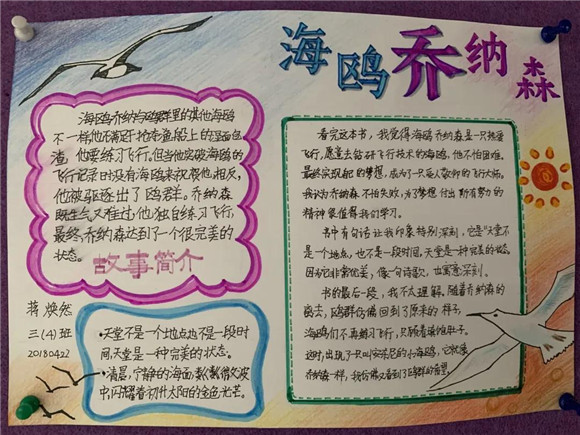 海鸥乔纳森
海鸥乔纳森与鸥群里的其他海鸥
不一样,他不满足抢夺渔船上的面包
渣,他要练习飞行。但当他突破海鸥的
飞行记录时,没有海鸥来祝贺他,相反,
他被驱逐出了鸥群。乔纳森
既生气又难过,他独自练习飞行,
最终乔纳森达到了一个很完美的
状态。
故事简介
蒋焕然
三(4)班
20180422
·天堂不是一个地点,也不是一段时
间,天堂是一种完美的状态。
·清晨,宁静的海面
中闪耀着初升太阳的金色光芒。
看完这本书,我觉得海鸥乔纳森是一只热爱
飞行,愿意去钻研飞行技术的海鸥,他不怕困难,
最终实现自己的梦想,成为了一只受人敬仰的飞行大师。
我认为乔纳森不怕失败,为了梦想付出所有努力的
精神很值得我们学习。
书中有句话让我印象特别深刻,它是“天堂不
是一个地点,也不是一段时间,天堂是一种完美的状态。
因为它非常优美,像一句诗歌,也寓意深刻。
书的最后一段,我不太理解。随着乔纳森的
离去,鸥群仿佛回到了原来的样子,
海鸥们不再练习飞行,只顾着填饱肚子。
这时,出现了一只叫安东尼的小海鸥,它就像
乔纳森一样,我仿佛又看到了鸥群的希望。